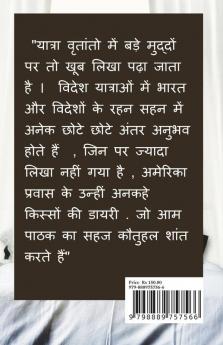 "यात्रा वृतांतो में बड़े मुद्दों
पर तो खूब लिखा पढ़ा जाता
है । विदेश यात्राओं में भारत
और विदेशों के रहन सहन में
अनेक छोटे छोटे अंतर अनुभव
होते हैं , जिन पर ज्यादा
लिखा नहीं गया है , अमेरिका
प्रवास के उन्हीं अनकहे
किस्सों की डायरी . जो आम
पाठक का सहज कौतुहल शांत
करते हैं"
Price: Rs 150.00
979-888975756-6
9 798889 757566